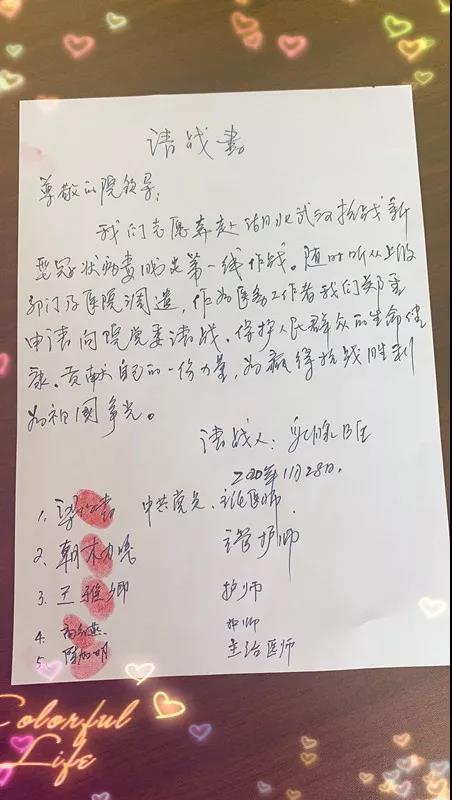 请战书
尊敬的院领导:
我们志愿奔赴湖北武汉抗战新
型冠状病毒肺炎第一线作战。随时听从上级
部门及医院调遣,作为医务工作者我们郑重
申请向院党委请战。保护人民群众的生命健
康、贡献自己的一份力量,为赢得抗战胜利
为祖国争光。
请战人:
2020年1月28日.
1. 中共党员、主任医师
2. 主管护师
3. 王雅卿 护师
4. 护师
5. 主治医师
Colorful
Life